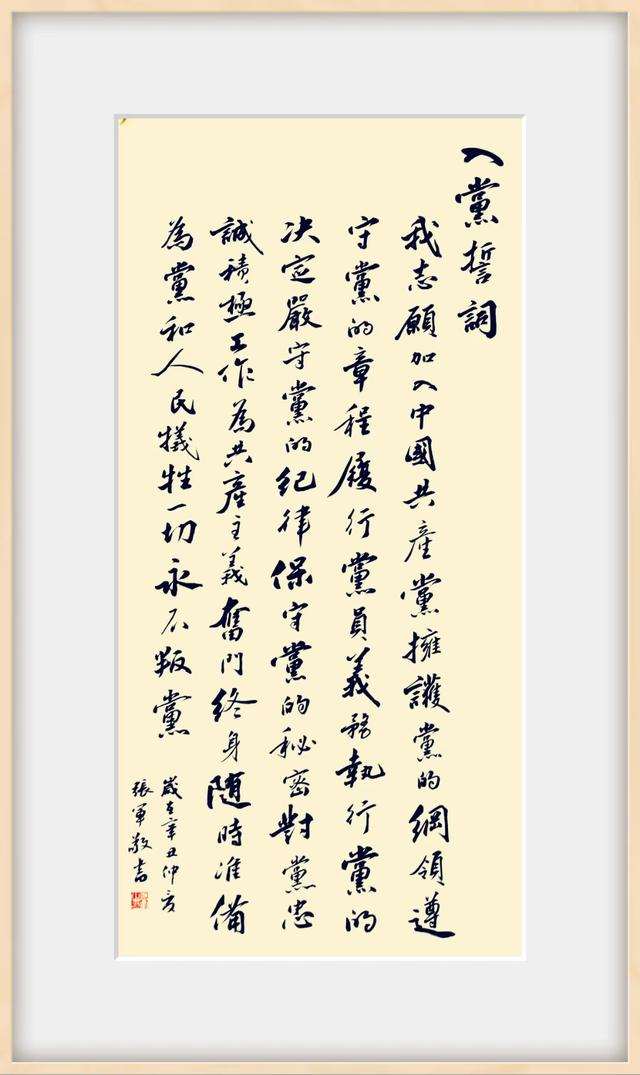 入黨誓詞
我志願加入中國共產黨擁護黨的綱領遵
守黨的章程履行黨員義務執行黨的
决定嚴守黨的紀律保守黨的秘密對黨忠
誠積極工作為共產主義奮鬥終身随時准備
為黨和人民犧牲一切永不叛黨
歲在辛丑仲夏
張軍敬書